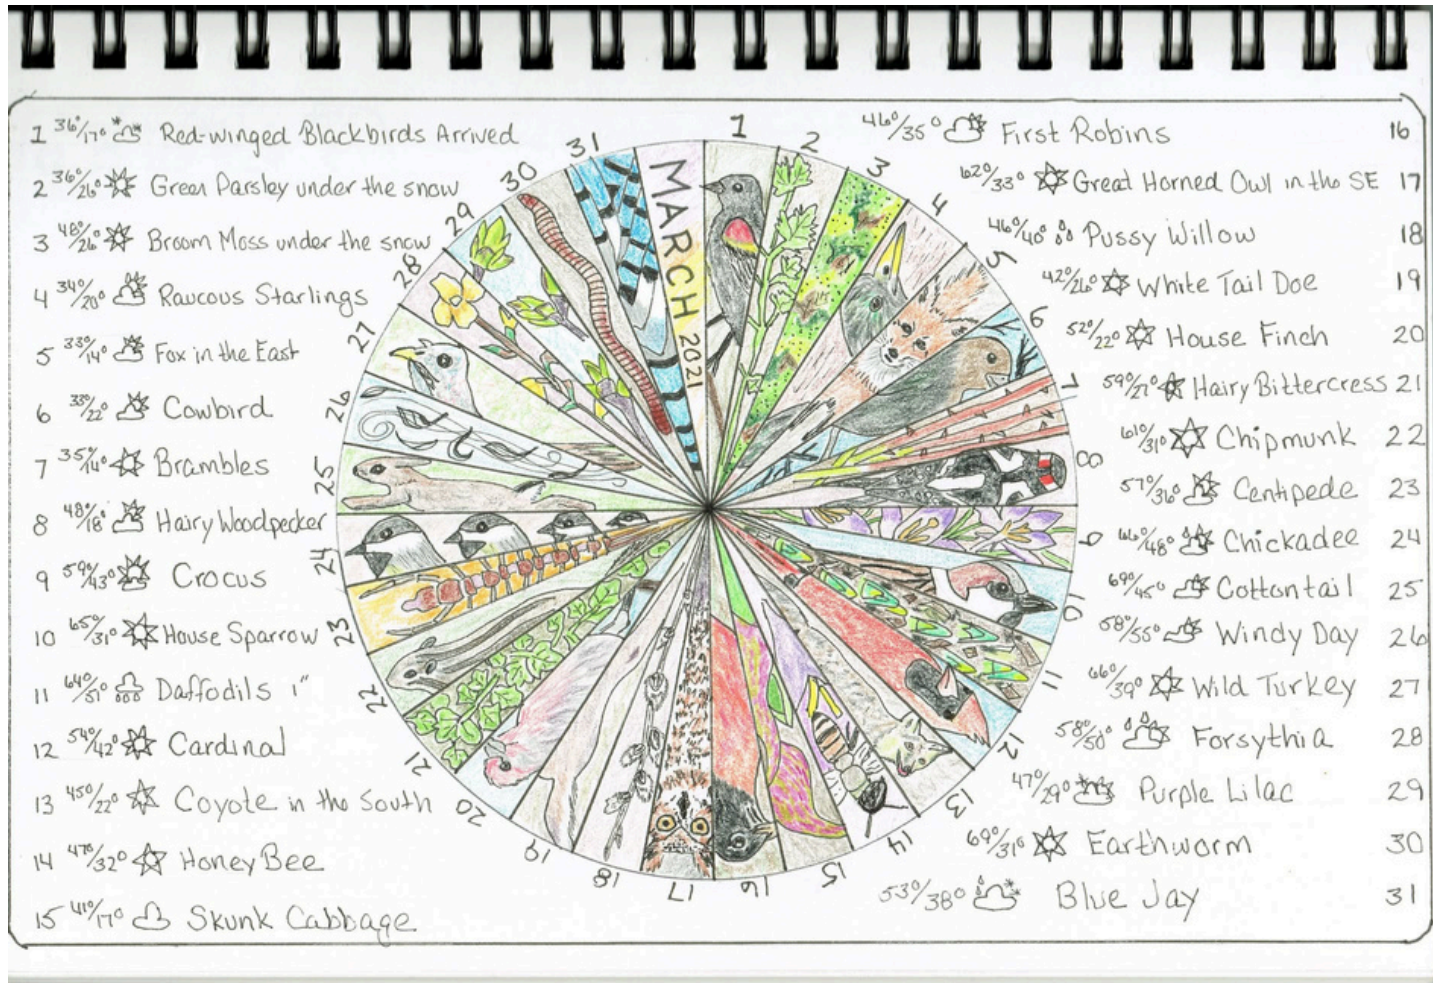 1 36°/17° Red-winged Blackbirds Arrived
2 36°/26° Green Parsley under the snow
3 48°/26° Broom Moss under the snow
4 34°/20° Raucous Starlings
5 33°/14° Fox in the East
6 33°/22° Cowbird
7 35°/14° Brambles
8 48°/18° Hairy Woodpecker
9 59°/43° Crocus
10 65°/31° House Sparrow
11 64°/51° Daffodils 1"
12 54°/42° Cardinal
13 45°/22° Coyote in the South
14 47°/32° Honey Bee
15 41°/17° Skunk Cabbage
MARCH 2021
1
2
3
4
5
6
7
8
9
10
11
12
13
14
15
16
17
18
19
20
21
22
23
24
25
26
27
28
29
30
31
46°/35° First Robins 16
62°/33° Great Horned Owl in the SE 17
46°/40° Pussy Willow 18
42°/26° White Tail Doe 19
52°/22° House Finch 20
59°/21° Hairy Bittercress 21
61°/31° Chipmunk 22
57°/36° Centipede 23
66°/48° Chickadee 24
69°/45° Cottontail 25
58°/55° Windy Day 26
66°/39° Wild Turkey 27
58°/50° Forsythia 28
47°/29° Purple Lilac 29
69°/31° Earthworm 30
53°/38° Blue Jay 31